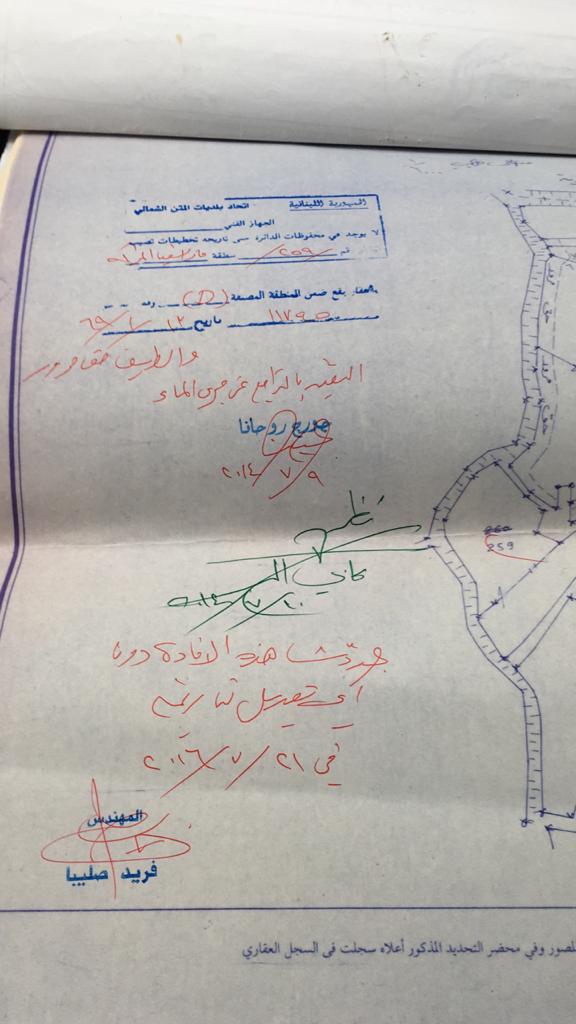 الجمهورية اللبنانية
اتحاد بلديات المتن الشمالي
الجهاز الفني
لا يوجد في محفوظات الدائرة حتى تاريخه تخطيطات تصيب
رقم /٢٥٩/ منطقة
العقار يقع ضمن المنطقة المصنفة (D) رقم
١١٧٩٥ تاريخ ١٣/١/٦٩
والطريق حق مرور
التقيد بالتراجع عن مجرى الماء
جورج روحانا
٢٠١٤/٧/٩
٢٠١٤/٧/١٠
جددت هذه الافادة دون
اي تعديل
في ٢٠١٦/٧/٢١
المهندس
فريد صليبا
260
259
حق مرور
وفي محضر التحديد المذكور أعلاه سجلت في السجل العقاري